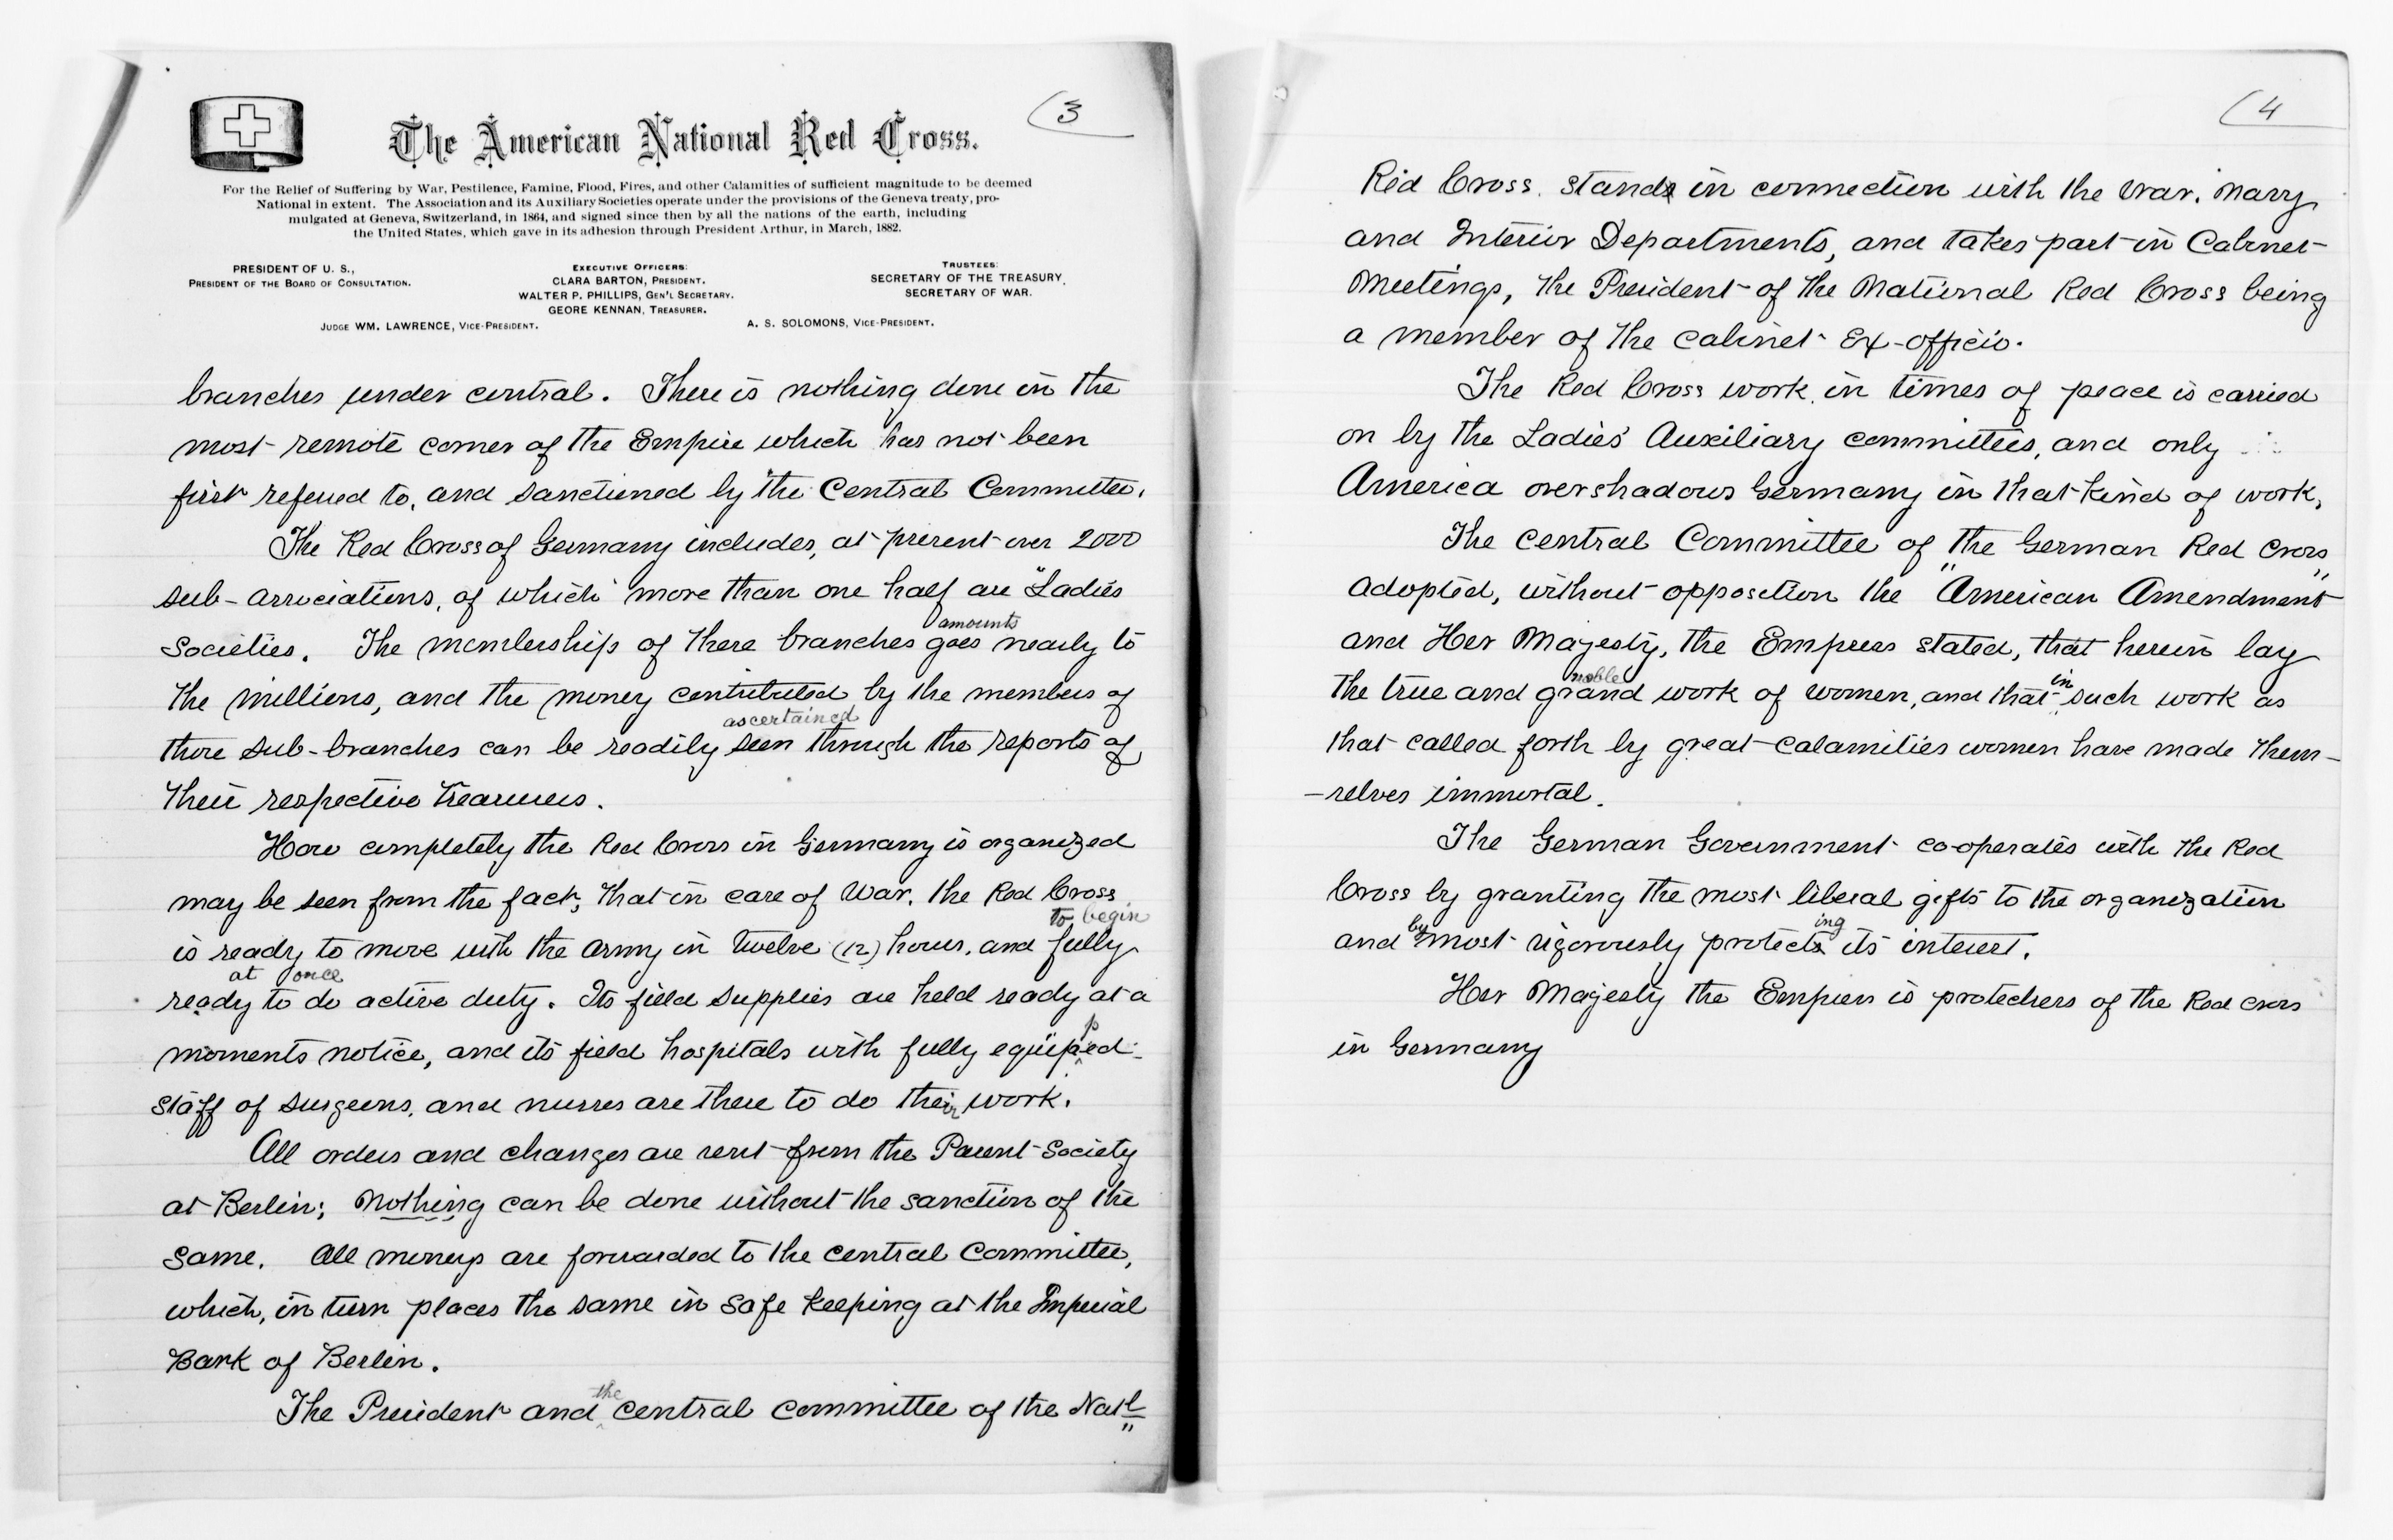 (3
The American National Red Cross.
For the Relief of Suffering by War, Pestilence, Famine, Flood, Fires, and other Calamities of sufficient magnitude to be deemed
National in extent. The Association and its Auxiliary Societies operate under the provisions of the Geneva treaty, pro-
mulgated at Geneva, Switzerland, in 1864, and signed since then by all the nations of the earth, including
the United States, which gave in its adhesion through President Arthur, in March, 1882.
PRESIDENT OF U. S.,
PRESIDENT OF THE BOARD OF CONSULTATION.
EXECUTIVE OFFICERS:
CLARA BARTON, PRESIDENT.
WALTER P. PHILLIPS, GEN'L SECRETARY.
GEORE KENNAN, TREASURER.
TRUSTEES:
SECRETARY OF THE TREASURY.
SECRETARY OF WAR.
JUDGE WM. LAWRENCE, VICE-PRESIDENT.
A. S. SOLOMONS, VICE-PRESIDENT.
branches under central. There is nothing done in the
most remote corner of the Empire which has not been
first referred to, and sanctioned by the Central Committee.
The Red Cross of Germany includes, at present over 2000
sub-associations, of which more than one half are "Ladies
amounts
Societies. The membership of these branches goes nearly to
the millions, and the money contributed by the members of
ascertained
these sub-branches can be readily seen through the reports of
their respective Treasurers.
How completely the Red Cross in Germany is organized
may be seen from the fact, that in case of War, the Red Cross
to begin
is ready to move with the army in twelve (12) hours, and fully
at once
ready to do active duty. Its field supplies are held ready at a
p
moments notice, and its field hospitals with fully equiped
staff of surgeons, and nurses are there to do their work.
All orders and changes are sent from the Parent Society
at Berlin; Nothing can be done without the sanction of the
same. All moneys are forwarded to the Central Committee,
which, in turn places the same in safe keeping at the Imperial
Bank of Berlin.
the
The President and central committee of the Natl
(4
Red Cross. stands in connection with the War. Navy
and Interior Departments, and takes part in Cabinet
Meetings, the President of the National Red Cross being
a member of the Cabinet Ex-officio.
The Red Cross work in times of peace is carried
on by the Ladies' Auxiliary committees, and only
America overshadows Germany in that kind of work.
The Central Committee of the German Red Cross
adopted, without opposition the "American Amendment"
and Her Majesty, the Empress stated, that herein lay
noble in
the true and grand work of women, and that such work as
that called forth by great calamities women have made them-
-selves immortal.
The German Government co-operates with the Red
Cross by granting the most liberal gifts to the organization
by ing
and most vigorously protects its interest.
Her Majesty the Empress is protectress of the Red Cross
in Germany